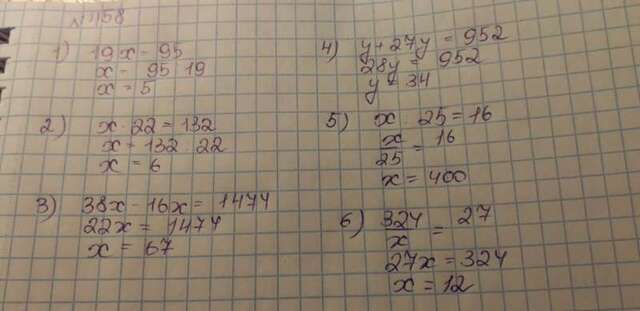 №1158
1) 19x = 95
x = 95 : 19
x = 5
2) x · 22 = 132
x = 132 : 22
x = 6
3) 38x - 16x = 1474
22x = 1474
x = 67
4) y + 27y = 952
28y = 952
y = 34
5) x : 25 = 16
x/25 = 16
x = 400
6) 324/x = 27
27x = 324
x = 12